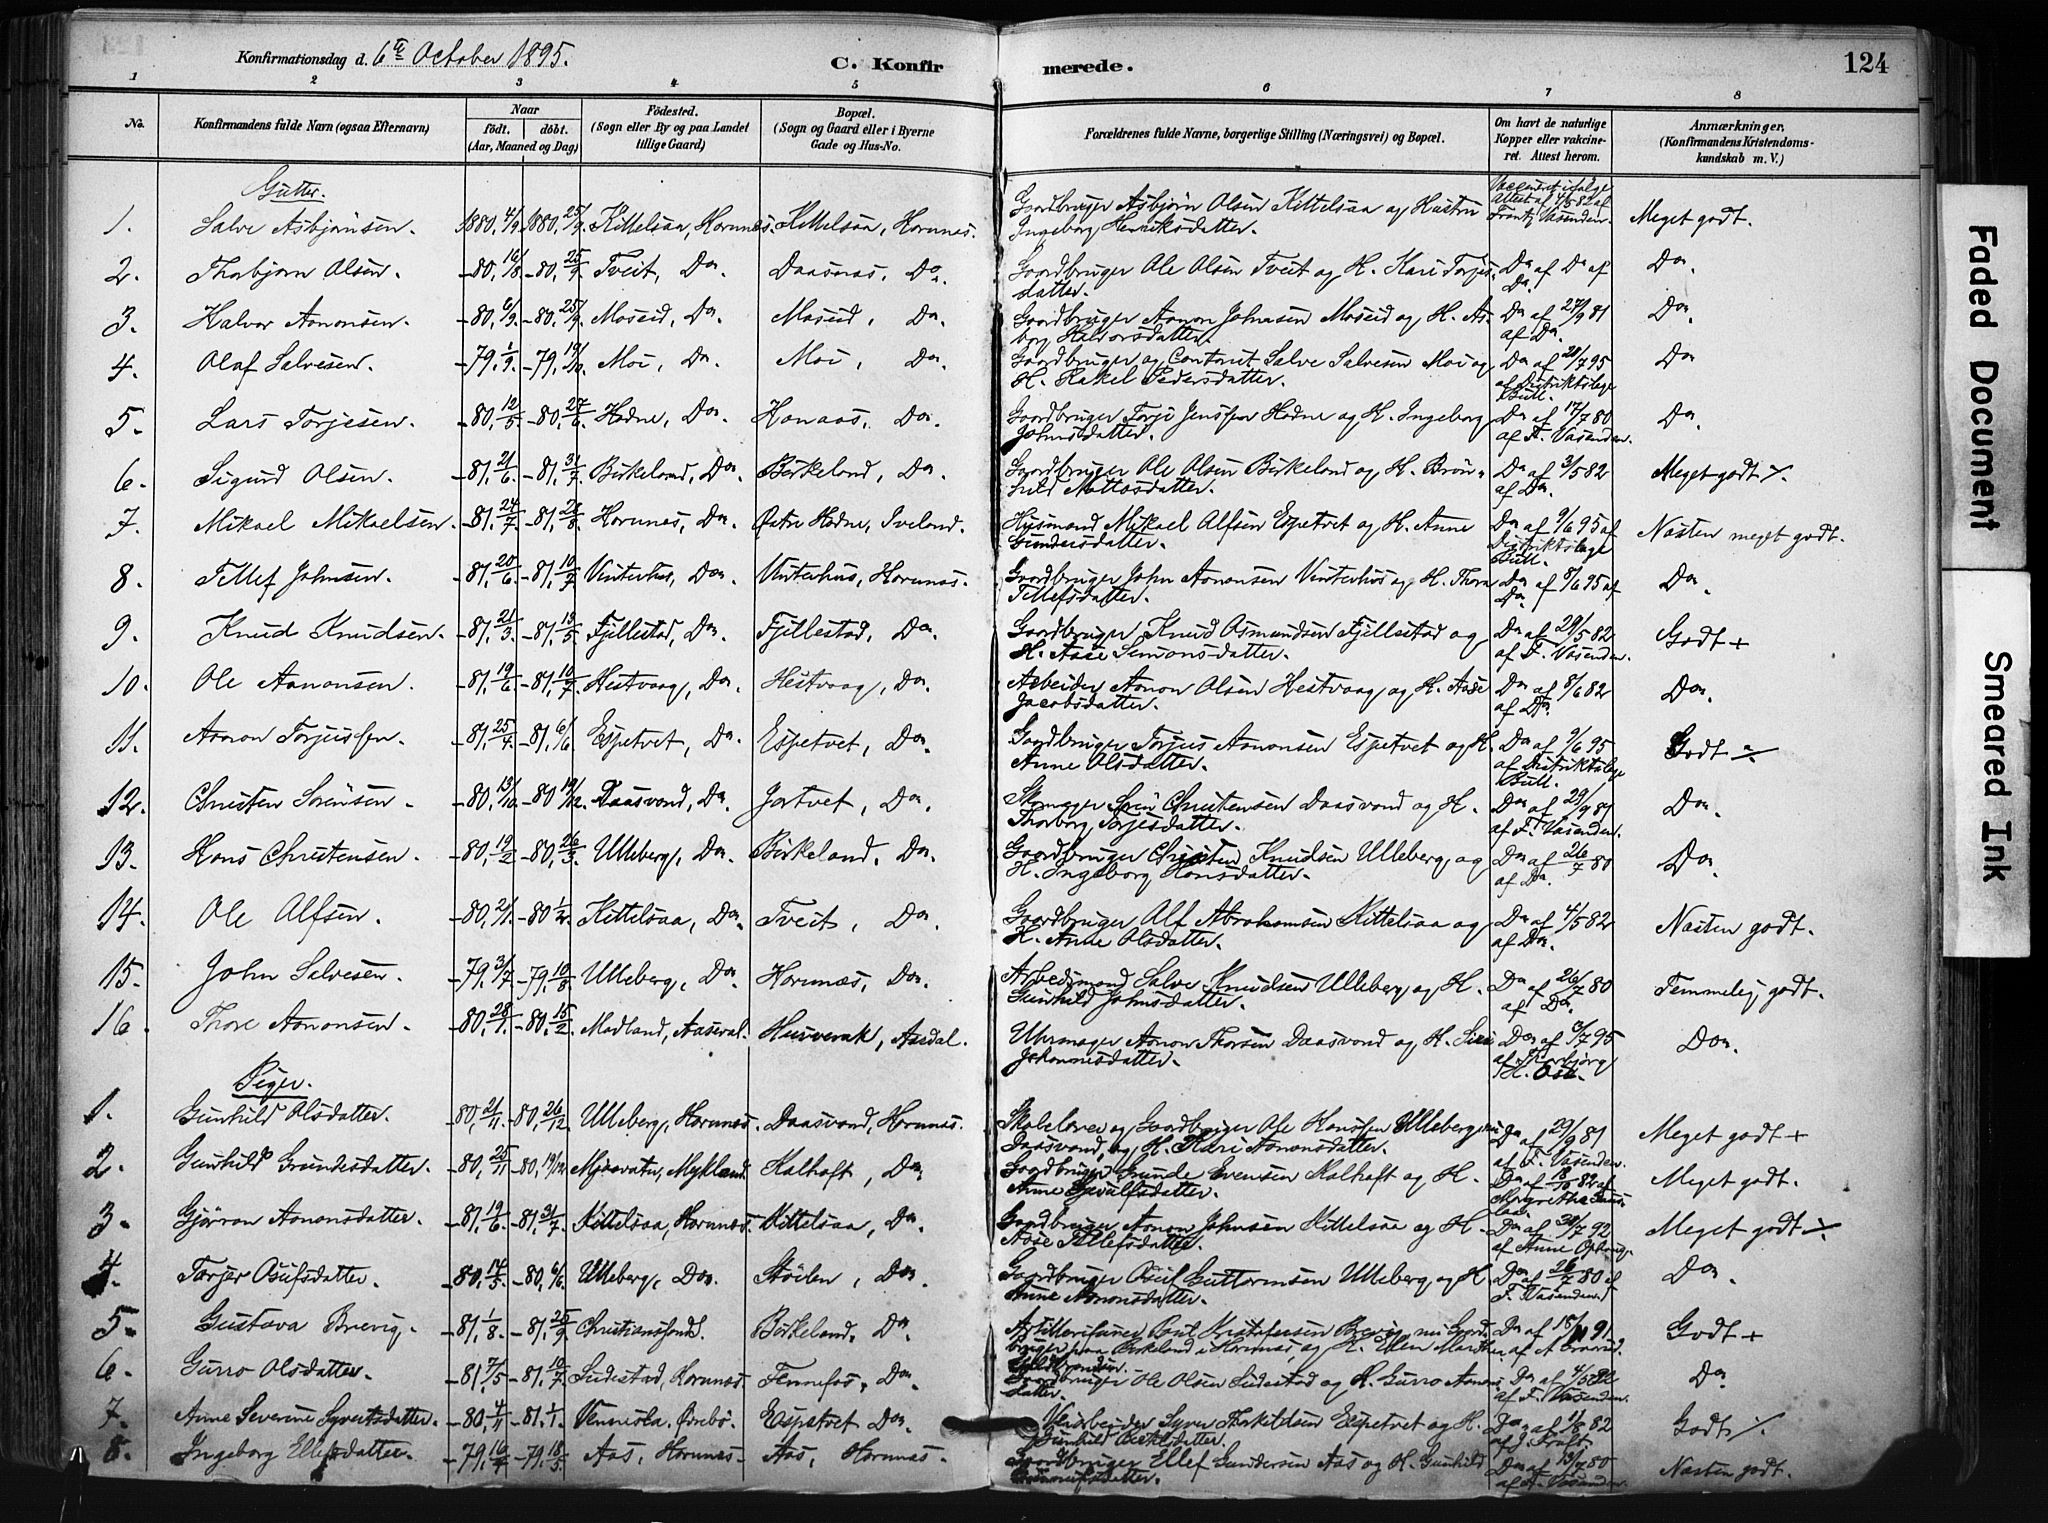 Konfirmationsdag d. 6te October 1895.
C. Konfirmerede.
124
1 2 3 4 5 6 7 8
No.
Konfirmandens fulde Navn (ogsaa Efternavn)
Naar
födt. döbt.
(Aar, Maaned og Dag)
Födested.
(Sogn eller By og paa Landet
tillige Gaard)
Bopæl.
(Sogn og Gaard eller i Byerne
Gade og Hus-No.
Forældrenes fulde Navne, borgerlige Stilling (Næringsvei) og Bopæl.
Om havt de naturlige
Kopper eller vakcine-
ret. Attest herom.
Anmærkninger.
(Konfirmandens Kristendoms-
kundskab m. V.)
Gutter.
1. Salve Asbjørnsen. 1880, 4/9. 1880, 25/9. Kittelsaa, Hornnes. Kittelsaa, Hornnes. Gaardbruger Asbjørn Olsen Kittelsaa og Hustru Vaccineret ifølge Attest af 4/5 82 af Meget godt.
Ingeborg Henriksdatter. Frantz Vasenden.
2. Thorbjørn Olsen. -80, 16/8 -80, 25/9. Tveit, Do. Daasnes, Do. Gaardbruger Ole Olsen Tveit og H. Kari Torjes- Do af Do af Do.
datter. Do.
3. Halvor Aanonsen. -80, 6/9. -80, 25/9 Moseid, Do. Moseid, Do. Gaardbruger Aanon Johnsen Moseid og H. As- Do af 27/9 81 Do.
borg Halvorsdatter. af Do.
4. Olaf Salvesen. -79, 1/9. -79, 19/10. Moi, Do. Moi, Do. Gaardbruger og Contorist Salve Salvesen Moi og Do af 20/7 95 Do
H. Rakel Pedersdatter. af Distriktslæge Bull.
5. Lars Torjesen. -80, 12/5. -80, 27/6. Hodne, Do. Honaas, Do. Gaardbruger Torje Jenssen Hodne og H. Ingeborg Do af 17/7 80 Do.
Johnsdatter. af F. Vasenden.
6. Sigurd Olsen. -81, 21/6. -81, 31/7. Birkeland, Do. Birkeland, Do. Gaardbruger Ole Olsen Birkeland og H. Brün- Do af 3/5 82 Meget godt ÷.
hild Mattosdatter. af Do.
7. Mikael Mikaelsen. -81, 24/7 -81, 28/8. Hornnes, Do. Østre Hodne, Iveland. Husmand Mikael Alfsen Espetvet og H. Anne Do af 9/6 95 af Næsten meget godt.
Gundersdatter. Distriktslæge Bull.
8. Tellef Johnsen. -81, 20/6 -81, 10/7 Vinterhus, Do. Vinterhus, Hornnes. Gaardbruger John Aanonsen Vinterhus og H. Thora Do af 8/6 95 af Do.
Tellefsdatter. Do.
9. Knud Knudsen. -81, 21/3. -81, 13/5 Fjellestad, Do. Fjellestad, Do. Gaardbruger Knud Osmundsen Fjellestad og Do af 29/5 82 Godt +
H. Aase Simonsdatter. af F. Vasenden.
10. Ole Aanonsen. -81, 19/6 -81, 10/7. Hestvaag, Do. Hestvaag, Do. Arbeider Aanon Olsen Hestvaag, og H. Aase Do af 8/6 82 Do.
Jacobsdatter. af Do.
11. Aanon Torjussen. -81, 25/4. -81, 6/6 Espetvet, Do. Espetvet, Do. Gaardbruger Torjus Aanonsen Espetvet og H. Do af 9/6 95 Godt ÷
Anne Olsdatter. af Distriktslæge Bull.
12. Christen Sørensen. -80, 13/10. -80 19/12. Daasvand, Do. Jortvet, Do. Skomager Sørn Christensen Daasvand og H. Do af 29/9 81 Do.
Thorborg Torjesdatter. af F. Vasenden.
13. Hans Christensen. -80, 19/2 -80, 26/3. Ulleberg, Do. Birkeland, Do. Gaardbruger Christen Knudsen Ulleberg, og Do af 26/7 80 Do.
H. Ingeborg Hansdatter. af Do.
14. Ole Alfsen. -80, 2/1. -80 Kittelsaa, Do. Tveit, Do. Gaardbruger Alf Abrahamsen Kittelsaa og Do af 4/5 82 Næsten godt.
H. Anne Olsdatter. af Do.
15. John Salvesen. -79, 3/7 -79, 10/8. Ulleberg, Do. Hornnæs, Do. Arbeidsmand Salve Knudsen Ulleberg, og H. Do af 26/7 80 Temmelig godt.
Gunhild Johnsdatter. af Do.
16. Thore Aanonsen. -80, 28/1. -80, 15/2 Modland, Aaseral. Husverak, Aasdal. Uhrmager Aanon Thorsen Daasvand og H. Siri Do af 3/7 95 Do.
Johannesdatter. af Thorbjørg H.
Piger.
1. Gunhild Olsdatter. -80, 21/11. -80, 26/12 Ulleberg, Hornnes. Daasvand, Hornnes. Skolelærer og Gaardbruger Ole Hanssen Ulleberg, nu Do af 29/9 81 Meget godt +
Daasvand, og H. Kari Aanonsdatter. af F. Vasenden.
2. Gunhild Grundesdatter. -80, 25/11 -80, 19/12. Mjaavatn, Mykland. Kalhaft, Do. Gaardbruger Grunde Evensen Kalhaft og H. Do af 18/10 82 af Meget godt.
Anne Gjeruldsdatter. Margrethe
3. Gjøran Aanonsdatter. -81, 19/6. -81, 31/7. Kittelsaa, Hornnes. Kittelsaa, Do. Gaardbruger Aanon Johnsen Kittelsaa og H. Do af 30/7 92 Meget godt ÷
Aase Tellefsdatter. af Anne
4. Torjer Osufsdatter. -80, 14/5. -80, 6/6. Ulleberg, Do. Støilen, Do. Gaardbruger Osuf Guttormsen Ulleberg, og H. Do af 26/7 80 af Do.
Anne Aanonsdatter. F. Vasenden.
5. Gustava Brevig. -81, 1/8. -81, 25/9. Christiansfond. Birkeland, Do. Artillerifaner Poul Kristofersen Brevig nu Gaard- Do af 18/11 91 Godt +
bruger paa Birkeland i Hornnes, og H. Ellen Marthe af A.
6. Gurro Olsdatter. -81, 7/5 -81, 10/7. Sudestad, Hornnes. Fennefos, Do. Gaardbruger Ole Olsen Sudestad og H. Gurro Aanons- Do af 4/5 82 Do.
datter. af F. Vasenden.
7. Anne Severine Syvertsdatter. -80, 4/11 -81, 1/1. Vennesla, Øvrebø. Espetvet Do. Veiarbeider Syver Therkildsen Espetvet og H. Do af 1/8 82 Godt ÷
Gunhild af J. Tofte.
8. Ingeborg Ellefsdatter. -79, 16/4 -79, 18/5. Aas, Hornnes. Aas, Hornnes. Gaardbruger Ellef Gundersen Aas og H. Gunhild Do af 13/7 80 Næsten godt.
af F. Vasenden.
Faded Document
Smeared Ink